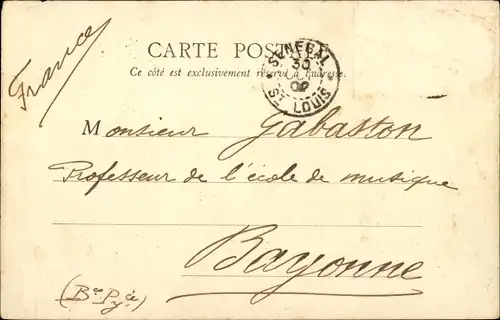 France
CARTE POSTALE
Ce côté est exclusivement réservé à l'adresse.
SENEGAL
30
02
ST LOUIS
Monsieur Gabaston
Professeur de l'école de musique
Bayonne
(Bses Pyrées)